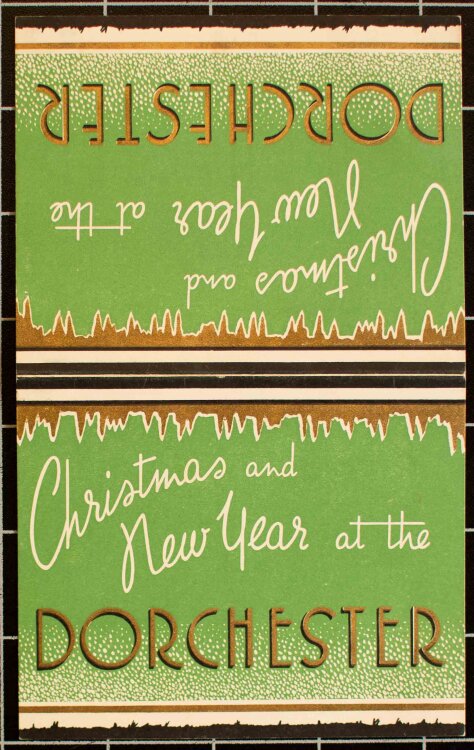 DORCHESTER
Christmas and
New Year at the
Christmas and
New Year at the
DORCHESTER